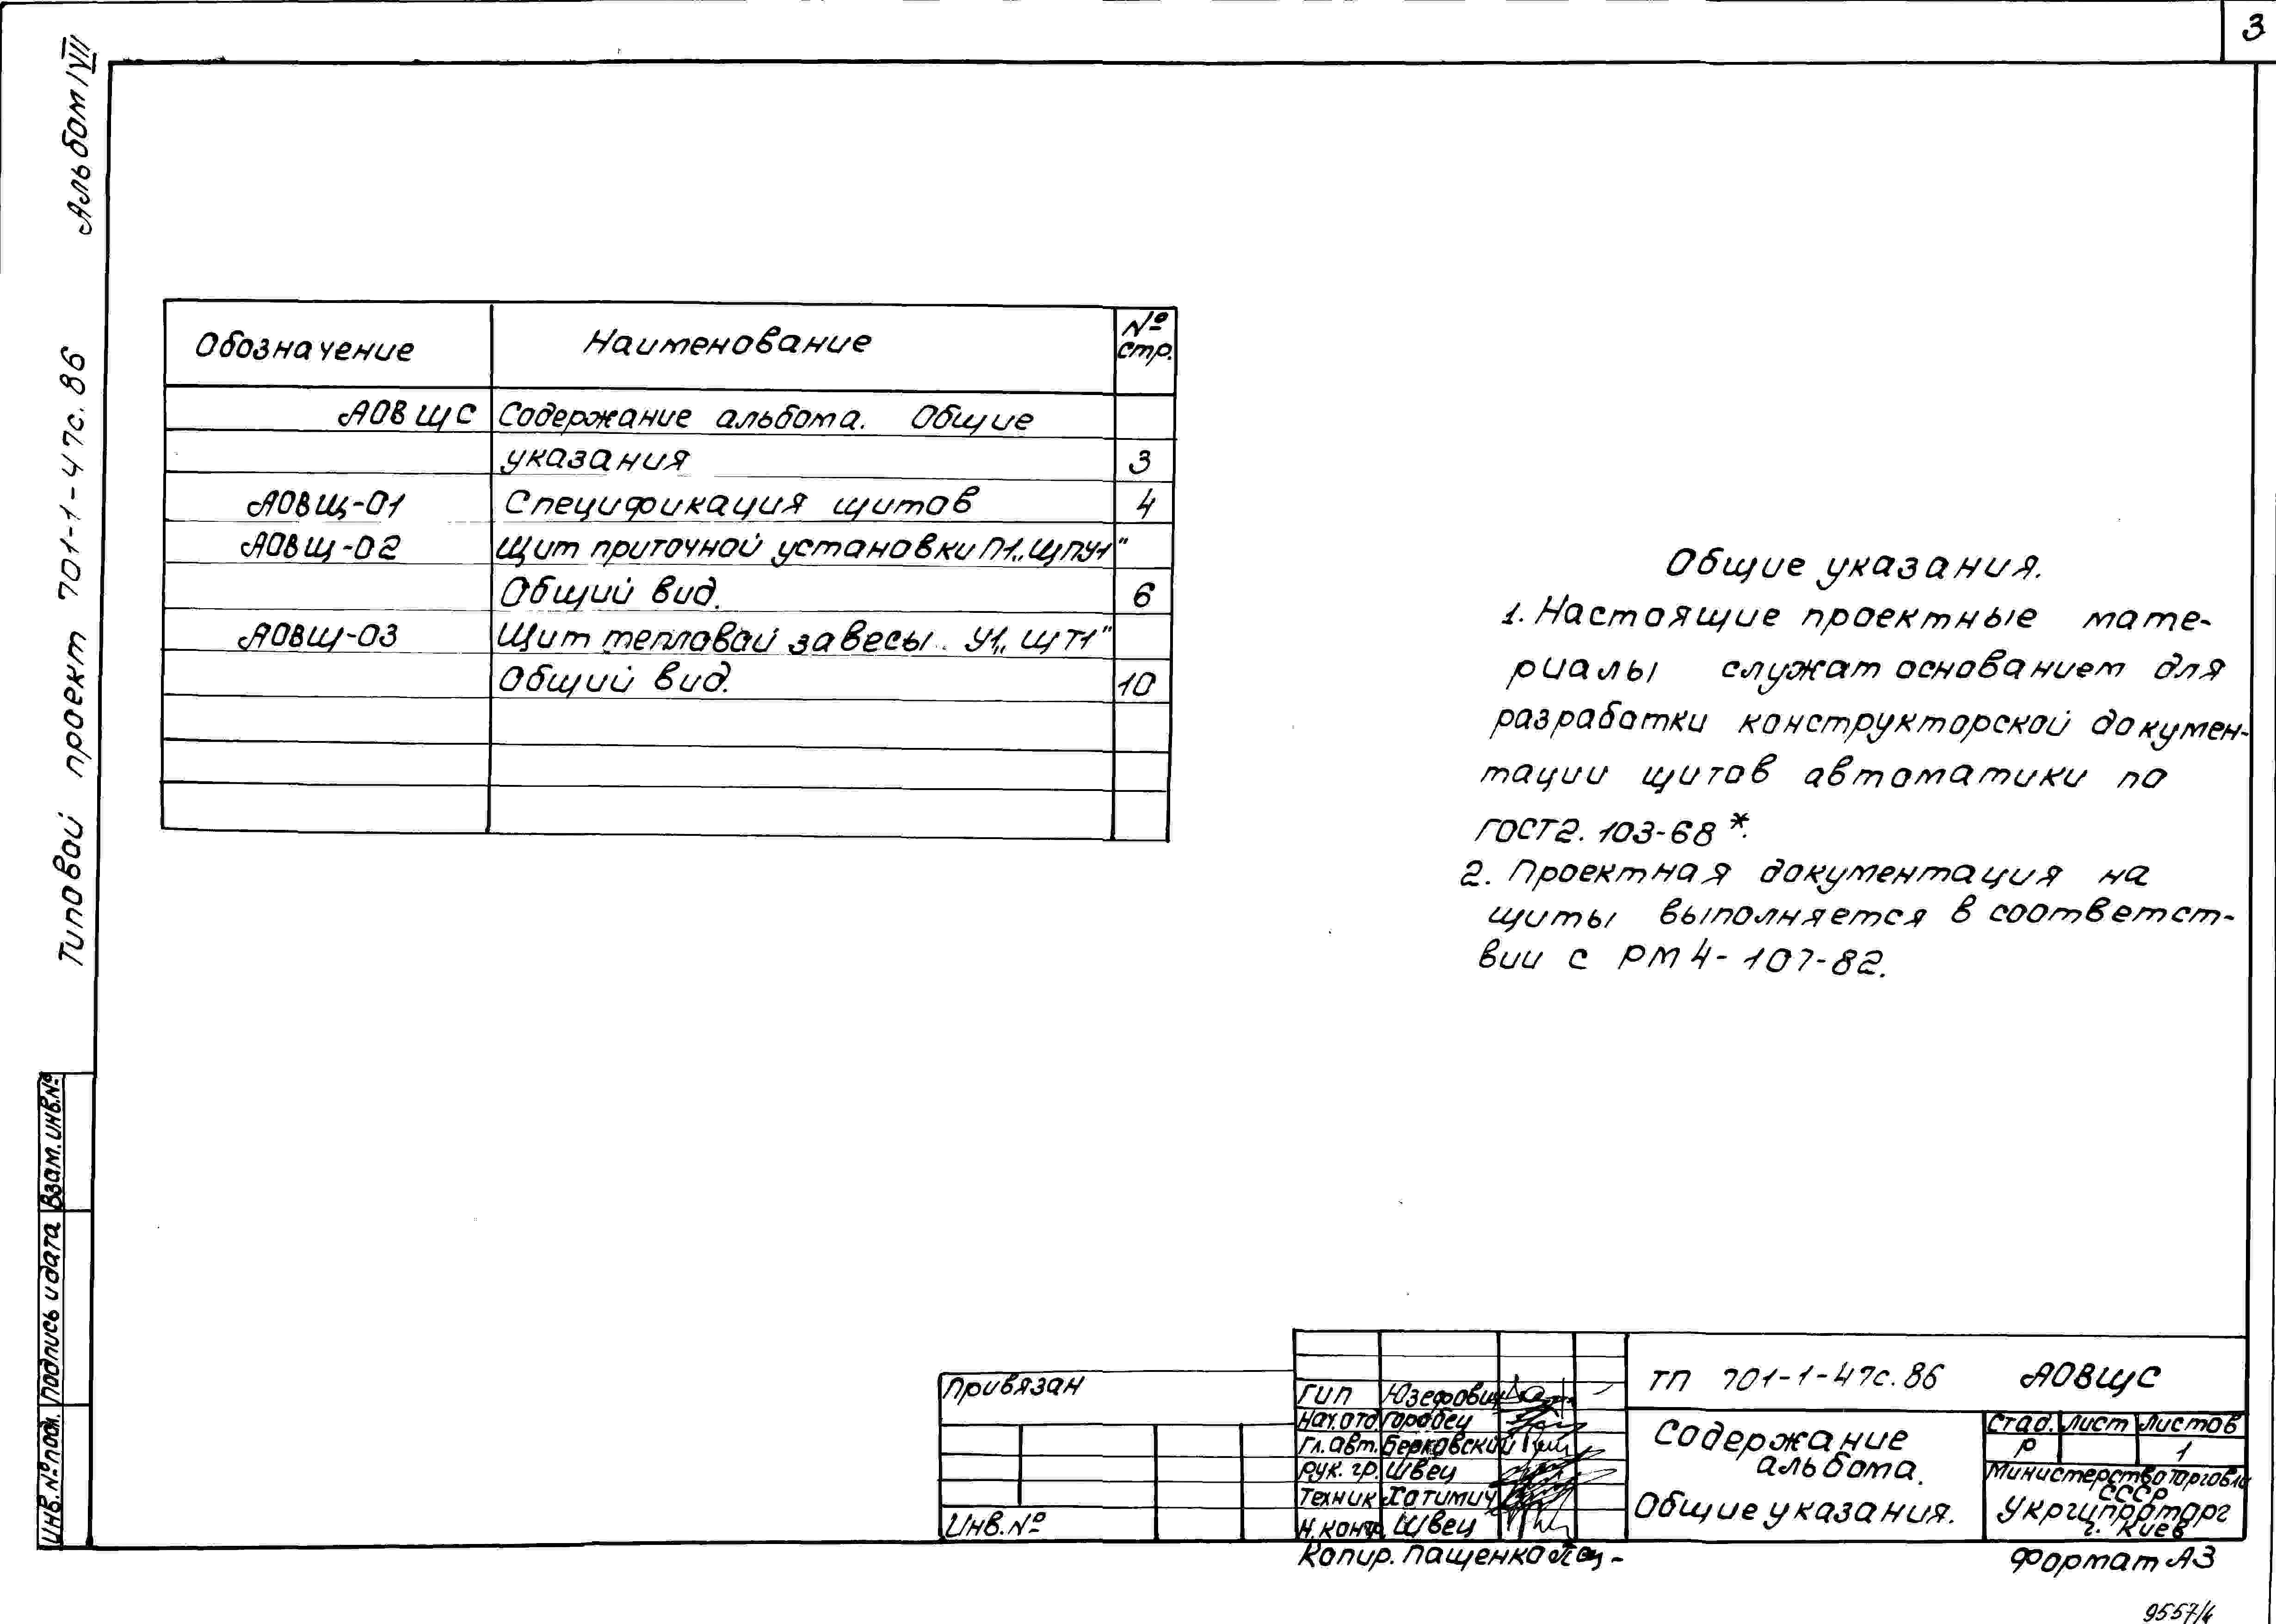 3
Альбом VII
Типовой проект 701-1-47с.86
Обозначение
Наименование
№
стр.
АОВЩС
Содержание альбома. Общие
указания
3
АОВЩ-01
Спецификация щитов
4
АОВЩ-02
Щит приточной установки П1 „ЩПУ1"
Общий вид.
6
АОВЩ-03
Щит тепловой завесы У1 „ЩТ1"
Общий вид.
10
Общие указания.
1. Настоящие проектные мате-
риалы служат основанием для
разработки конструкторской докумен-
тации щитов автоматики по
ГОСТ 2.103-68*.
2. Проектная документация на
щиты выполняется в соответст-
вии с РМ4-107-82.
Взам. инв. №
Подпись и дата
Инв. № подл.
Привязан
Инв. №
ГИП Юзефович
Нач. отд Горобец
Гл. авт. Берковский
Рук. гр. Швец
Техник Хатимич
Н. контр. Швец
ТП 701-1-47с.86 АОВЩС
Содержание
альбома.
Общие указания.
Стад. Лист Листов
Р 1
Министерство торговли
СССР
Укргипроторг
г. Киев
Копир. Пащенко
Формат А3